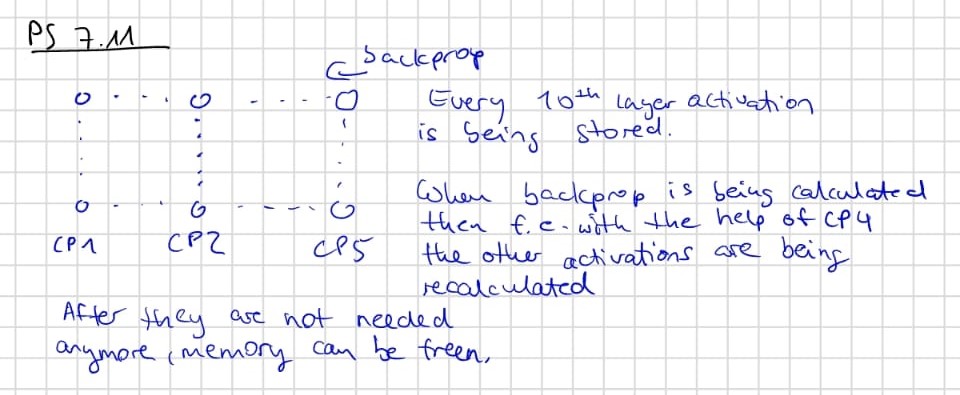 PS 7.11
backprop
Every 10th layer activation
is being stored.
When backprop is being calculated
then f.e. with the help of CP4
CP1 CP2 CP5
the other activations are being
recalculated
After they are not needed
anymore, memory can be freen.